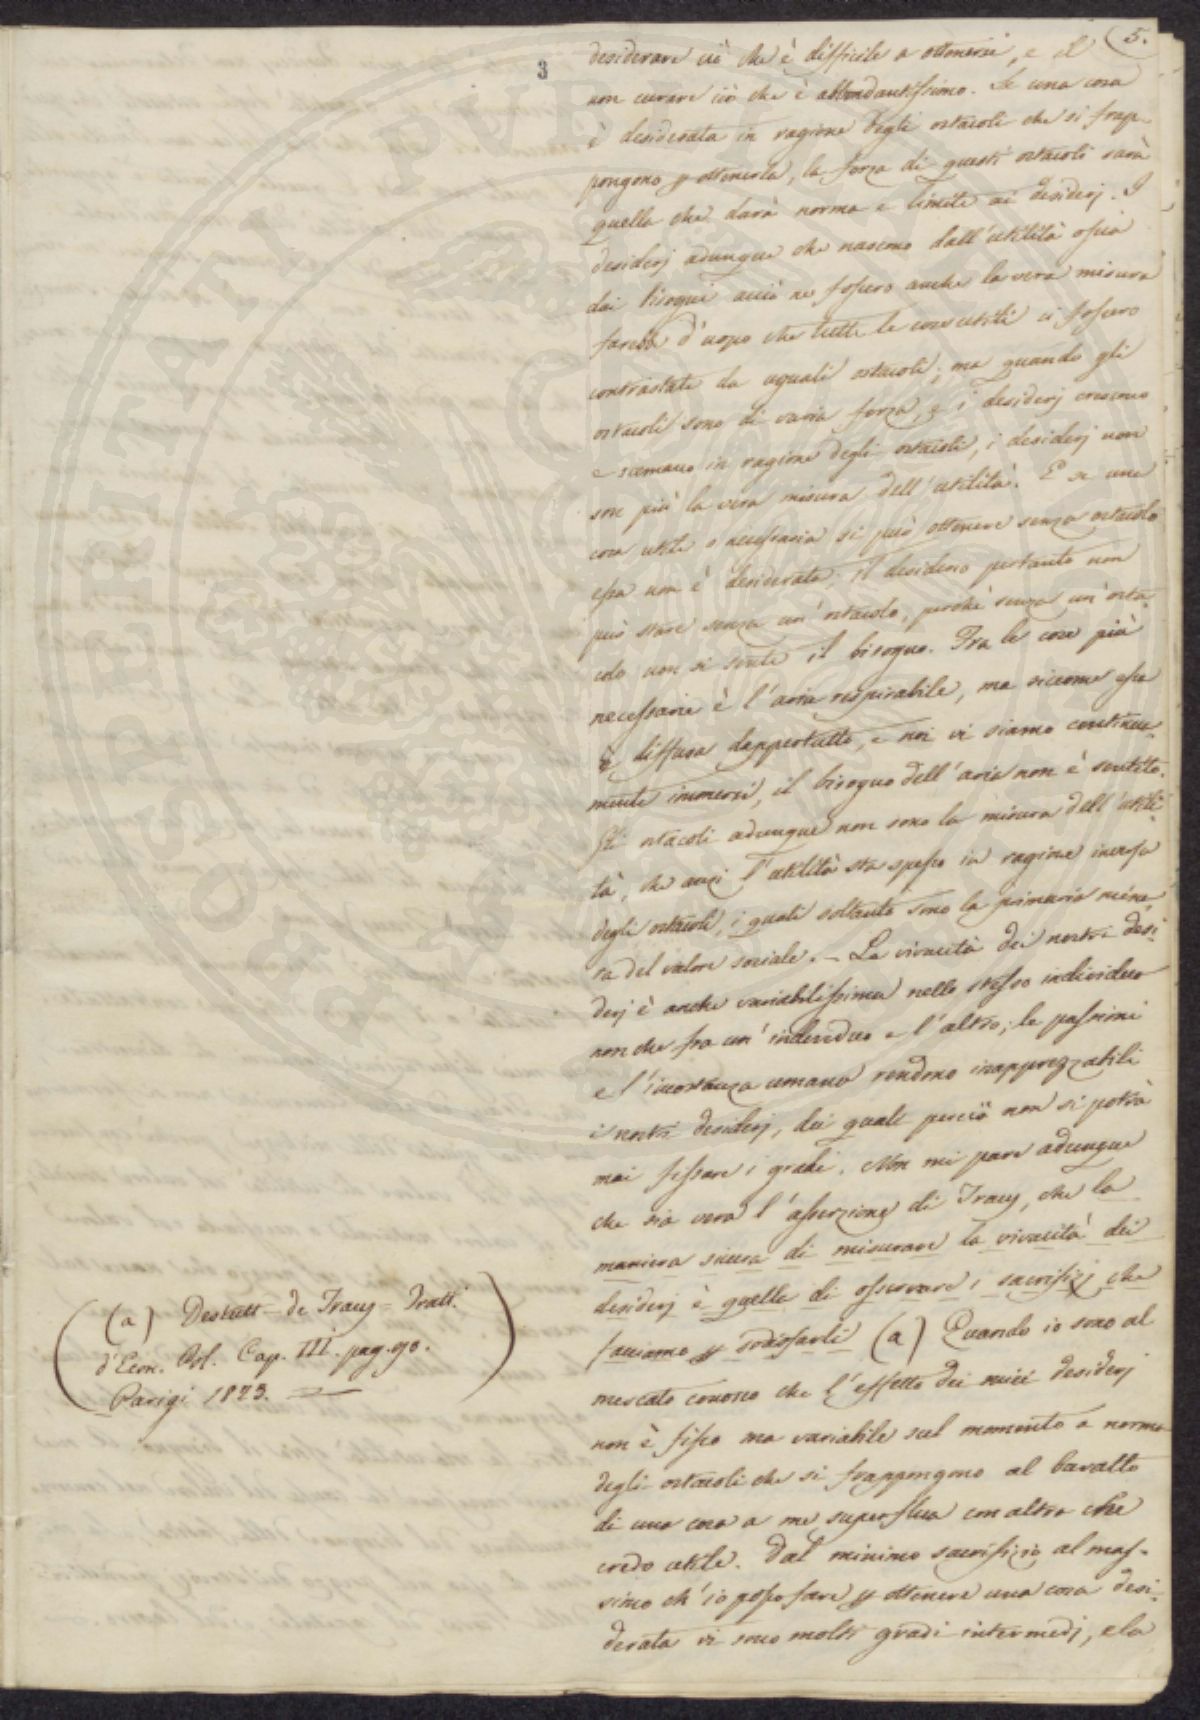 5.
3
desiderare ciò che è difficile a ottenersi, e il
non curare ciò che è abbondantissimo. Se una cosa
è desiderata in ragione degli ostacoli che si frap-
pongono p ottenerla, la forza di questi ostacoli sarà
quella che darà norma e limite ai desiderj. I
desiderj adunque che nascono dall'utilità ossia
dai bisogni acciò ne fossero anche la vera misura
farebbe d'uopo che tutte le cose utili ci fossero
contrastate da uguali ostacoli; ma quando gli
ostacoli sono di varia forza, e i desiderj crescono
e scemano in ragione degli ostacoli, i desiderj non
son più la vera misura dell'utilità. E se una
cosa utile o necessaria si può ottenere senza ostacolo
essa non è desiderata; il desiderio pertanto non
può stare senza un'ostacolo, perchè senza un'osta-
colo non si sente il bisogno. Fra le cose più
necessarie è l'aria respirabile, ma siccome essa
è diffusa dappertutto, e noi vi siamo continua-
mente immersi, il bisogno dell'aria non è sentito.
Gli ostacoli adunque non sono la misura dell'utili-
tà, che anzi l'utilità sta spesso in ragione inversa
degli ostacoli, i quali soltanto sono la primaria misu-
ra del valore sociale. — La vivacità dei nostri desi-
derj è anche variabilissima nello stesso individuo
non che fra un'individuo e l'altro; le passioni
e l'incostanza umana rendono inapprezzabili
i nostri desiderj, dei quali perciò non si potrà
mai fissare i gradi. Non mi pare adunque
che sia vera l'asserzione di Tracy, che la
maniera sicura di misurare la vivacità dei
desiderj è quella di osservare i sacrifizj che
facciamo p sodisfarli (a) Quando io sono al
mercato conosco che l'effetto dei miei desiderj
non è fisso ma variabile sul momento a norma
degli ostacoli che si frappongono al baratto
di una cosa a me superflua con altra che
credo utile. Dal minimo sacrifizio al mas-
simo ch'io posso fare p ottenere una cosa desi-
derata vi sono molti gradi intermedj, e la
(a) Destutt = de Tracy = Tratt.
d'Econ. Pol. Cap. III. pag. 90.
Parigi 1823.